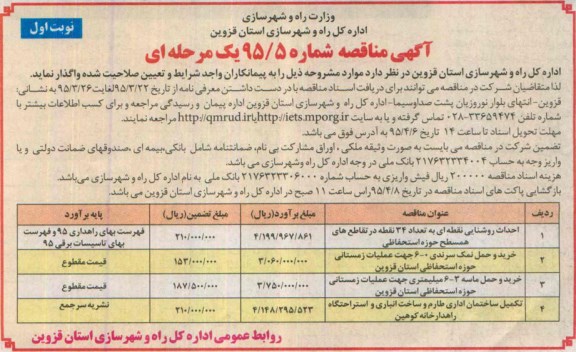 وزارت راه و شهرسازی
اداره کل راه و شهرسازی استان قزوین
نوبت اول
آگهی مناقصه شماره ۹۵/۵ یک مرحله ای
اداره کل راه و شهرسازی استان قزوین در نظر دارد موارد مشروحه ذیل را به پیمانکاران واجد شرایط و تعیین صلاحیت شده واگذار نماید.
لذا متقاضیان شرکت در مناقصه می توانند برای دریافت اسناد مناقصه با در دست داشتن معرفی نامه از تاریخ ۹۵/۳/۲۲ لغایت ۹۵/۳/۲۶ به نشانی:
قزوین- انتهای بلوار نوروزیان پشت صداوسیما- اداره کل راه و شهرسازی استان قزوین اداره پیمان و رسیدگی مراجعه و برای کسب اطلاعات بیشتر با
شماره تلفن ۳۳۶۵۹۴۷۴-۰۲۸ تماس گرفته و یا به سایت http://iets.mporg.ir یا http://qmrud.ir مراجعه نمایند.
مهلت تحویل اسناد تا ساعت ۱۴ تاریخ ۹۵/۴/۶ به آدرس فوق می باشد.
تضمین شرکت در مناقصه می بایست به صورت وثیقه ملکی ، اوراق مشارکت بی نام، ضمانتنامه شامل بانکی، بیمه ای ،صندوقهای ضمانت دولتی و یا
واریز وجه به حساب ۲۱۷۶۳۲۳۳۴۰۰۴ بانک ملی در وجه اداره کل راه وشهرسازی می باشد.
هزینه اسناد مناقصه ۲۰۰۰۰۰ ریال فیش واریزی به حساب شماره ۲۱۷۶۳۲۳۳۰۶۰۰۰ بانک ملی به نام اداره کل راه و شهرسازی می‌باشد.
بازگشایی پاکت های اسناد مناقصه در تاریخ ۹۵/۴/۸ راس ساعت ۱۱ صبح در اداره کل راه و شهرسازی استان قزوین می باشد.
ردیف عنوان مناقصه مبلغ برآورد(ریال) مبلغ تضمین(ریال) پایه برآورد
۱ احداث روشنایی نقطه ای به تعداد ۳۴ نقطه در تقاطع های همسطح حوزه استحفاظی ۴/۱۹۹/۹۶۷/۸۶۱ ۲۱۰/۰۰۰/۰۰۰ فهرست بهای راهداری ۹۵ و فهرست بهای تاسیسات برقی ۹۵
۲ خرید و حمل نمک سرندی ۰-۶ جهت عملیات زمستانی حوزه استحفاظی استان قزوین ۳/۰۶۰/۰۰۰/۰۰۰ ۱۵۳/۰۰۰/۰۰۰ قیمت مقطوع
۳ خرید و حمل ماسه ۳-۶ میلیمتری جهت عملیات زمستانی حوزه استحفاظی استان قزوین ۳/۷۵۰/۰۰۰/۰۰۰ ۱۸۷/۵۰۰/۰۰۰ قیمت مقطوع
۴ تکمیل ساختمان اداری طارم و ساخت انباری و استراحتگاه راهدارخانه کوهین ۴/۱۴۸/۲۹۵/۵۲۳ ۲۱۰/۰۰۰/۰۰۰ نشریه سرجمع
روابط عمومی اداره کل راه و شهرسازی استان قزوین